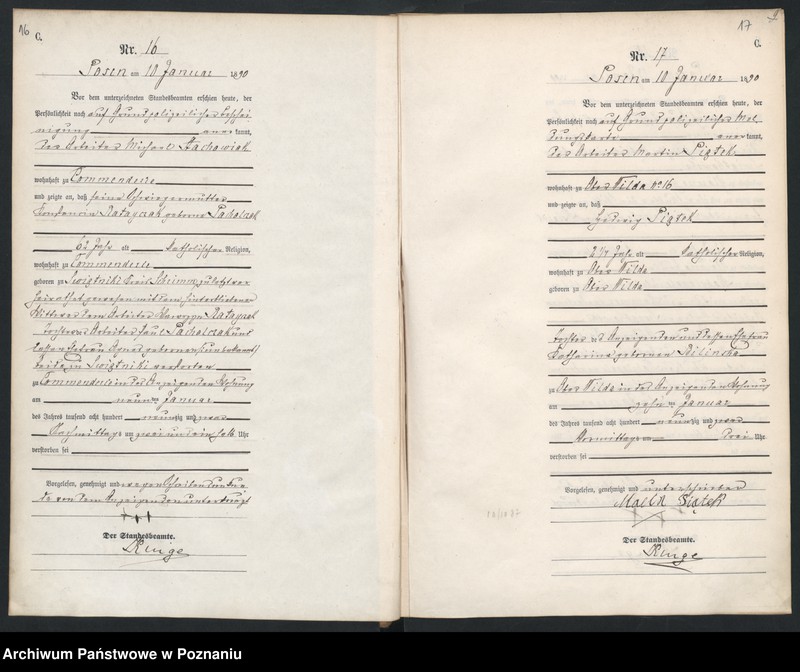 16
C.
Nr. 16
Posen am 10 Januar 1890
Vor dem unterzeichneten Standesbeamten erschien heute, der
Persönlichkeit nach auf Grund polizeilicher Beschei
nigung anerkannt,
der Arbeiter Michael
wohnhaft zu Commenderie
und zeigte an, daß seine Schwiegermutter
Konstancia Ratayczak geborne
62 Jahr alt katholischer Religion,
wohnhaft zu Commenderie
geboren zu Swiątniki Kreis Schrimm, zuletzt ver
heirathet gewesen mit dem hinterbliebenen
Wittwer dem Arbeiter Ratayczak
Tochter des Arbeiters und
Beide in Swiątniki verstorben
zu Commenderie in des Anzeigenden Wohnung
am neunten Januar
des Jahres tausend acht hundert neunzig und zwar
Nachmittags um zwei und ein halb Uhr
verstorben sei
Vorgelesen, genehmigt und wegen Schreibensunkun
de von dem Anzeigenden unterkreuzt
+++
Der Standesbeamte.
Kluge
17
C.
Nr. 17
Posen am 10 Januar 1890
Vor dem unterzeichneten Standesbeamten erschien heute, der
Persönlichkeit nach auf Grund polizeilicher Mel
dungskarte anerkannt,
der Arbeiter Martin Piątek
wohnhaft zu Ober Wilda No 16
und zeigte an, daß
Hedwig Piątek
Jahr alt katholischer Religion,
wohnhaft zu Ober Wilda
geboren zu Ober Wilda
Tochter des Anzeigenden und dessen Ehefrau
Katharina gebornen Bilinska
zu Ober Wilda in des Anzeigenden Wohnung
am zehnten Januar
des Jahres tausend acht hundert neunzig und zwar
Vormittags um drei Uhr
verstorben sei
Vorgelesen, genehmigt und unterschrieben
Piątek
Der Standesbeamte.
Kluge
Archiwum Państwowe w Poznaniu